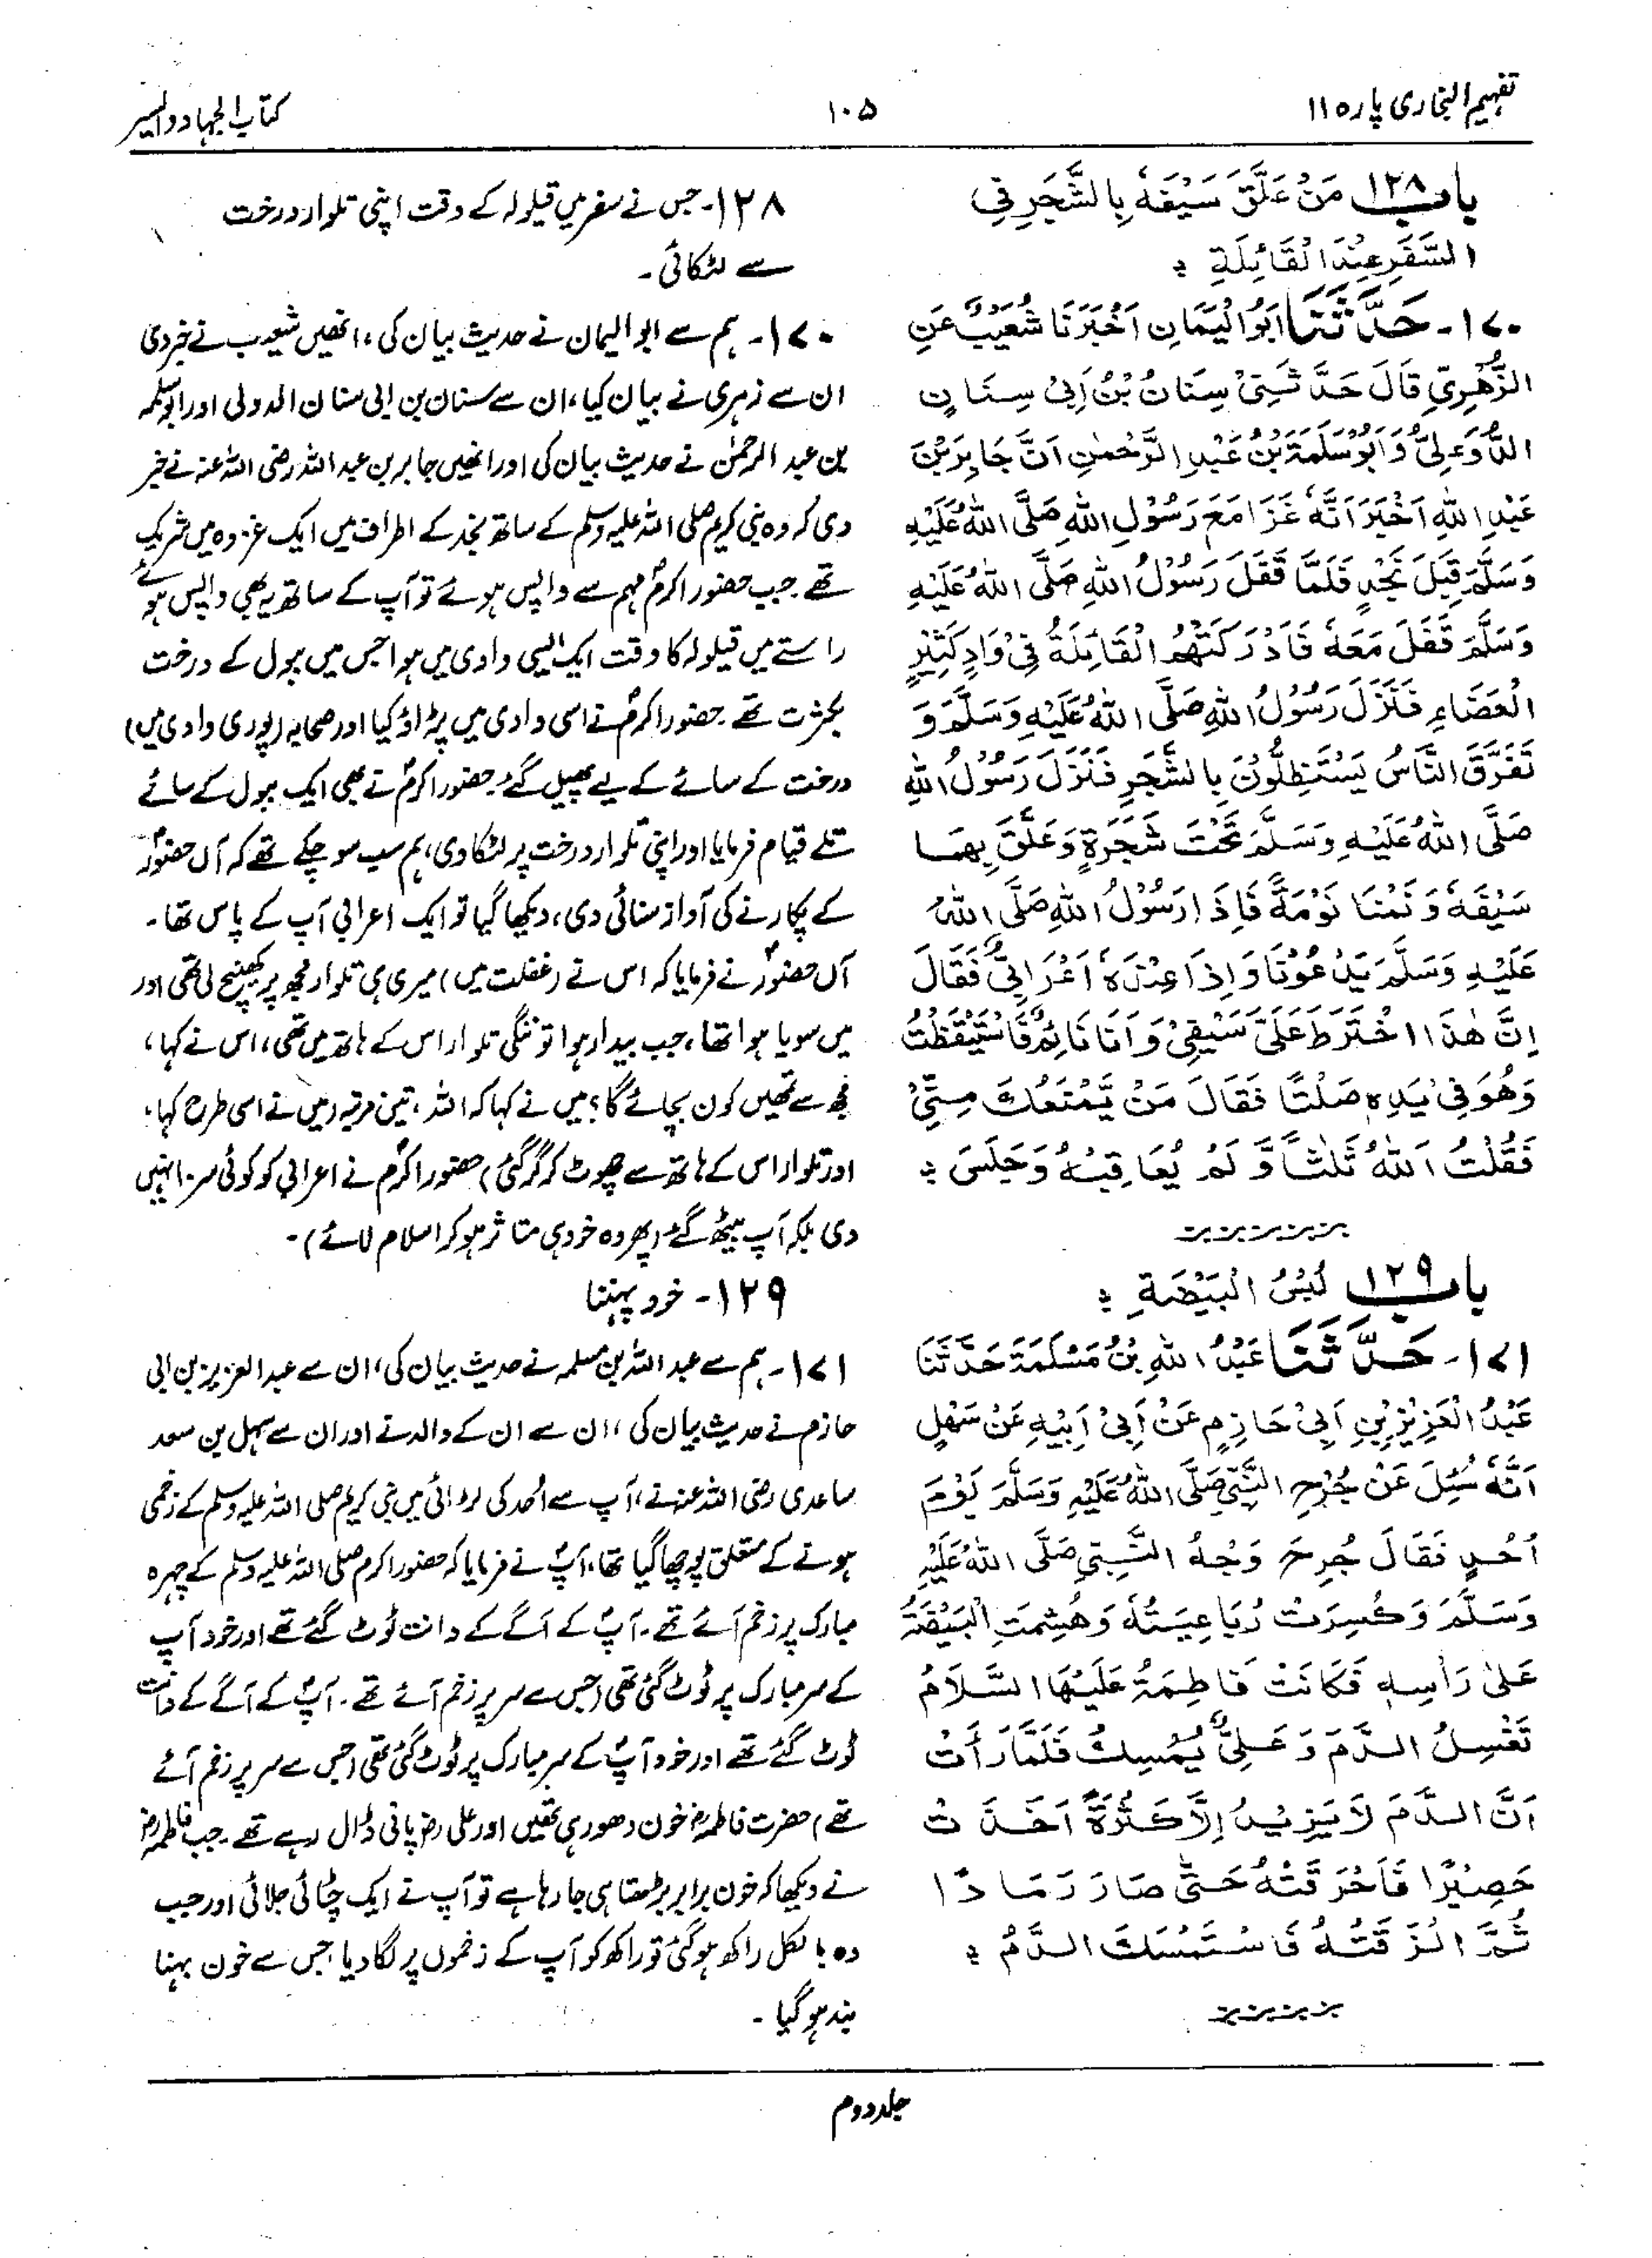 تفہیم البخاری پارہ ۱۱
۱۰۵
کتاب الجہاد والسیر
باب ۱۲۸ مَنْ عَلَّقَ سَيْفَهٗ بِالشَّجَرِ فِي
السَّفَرِ عِنْدَ الْقَائِلَةِ ؞
۱۷۰- حَدَّثَنَا اَبُو الْيَمَانِ اَخْبَرَنَا شُعَيْبٌ عَنِ
الزُّهْرِيِّ قَالَ حَدَّثَنِيْ سِنَانُ بْنُ اَبِيْ سِنَانٍ
الدُّؤَلِيُّ وَ اَبُوْ سَلَمَةَ بْنُ عَبْدِ الرَّحْمٰنِ اَنَّ جَابِرَ بْنَ
عَبْدِ اللهِ اَخْبَرَ اَنَّهٗ غَزَا مَعَ رَسُوْلِ اللهِ صَلَّى اللهُ عَلَيْهِ
وَسَلَّمَ قِبَلَ نَجْدٍ فَلَمَّا قَفَلَ رَسُوْلُ اللهِ صَلَّى اللهُ عَلَيْهِ
وَسَلَّمَ قَفَلَ مَعَهٗ فَاَدْرَكَتْهُمُ الْقَائِلَةُ فِيْ وَادٍ كَثِيْرِ
الْعِضَاهِ فَنَزَلَ رَسُوْلُ اللهِ صَلَّى اللهُ عَلَيْهِ وَسَلَّمَ وَ
تَفَرَّقَ النَّاسُ يَسْتَظِلُّوْنَ بِالشَّجَرِ فَنَزَلَ رَسُوْلُ اللهِ
صَلَّى اللهُ عَلَيْهِ وَسَلَّمَ تَحْتَ شَجَرَةٍ وَعَلَّقَ بِهَا
سَيْفَهٗ وَ نِمْنَا نَوْمَةً فَاِذَا رَسُوْلُ اللهِ صَلَّى اللهُ
عَلَيْهِ وَسَلَّمَ يَدْعُوْنَا وَاِذَا عِنْدَهٗ اَعْرَابِيٌّ فَقَالَ
اِنَّ هٰذَا اخْتَرَطَ عَلَىَّ سَيْفِيْ وَ اَنَا نَائِمٌ فَاسْتَيْقَظْتُ
وَهُوَ فِيْ يَدِهٖ صَلْتًا فَقَالَ مَنْ يَّمْنَعُكَ مِنِّيْ
فَقُلْتُ اَللهُ ثَلٰثًا وَّ لَمْ يُعَاقِبْهُ وَجَلَسَ ؞
باب ۱۲۹ لُبْسُ الْبَيْضَةِ ؞
۱۷۱- حَدَّثَنَا عَبْدُ اللهِ بْنُ مَسْلَمَةَ حَدَّثَنَا
عَبْدُ الْعَزِيْزِ بْنِ اَبِيْ حَازِمٍ عَنْ اَبِيْ اَبِيْهِ عَنْ سَهْلٍ
اَنَّهٗ سُئِلَ عَنْ جُرْحِ النَّبِيِّ صَلَّى اللهُ عَلَيْهِ وَسَلَّمَ يَوْمَ
اُحُدٍ فَقَالَ جُرِحَ وَجْهُ النَّبِيِّ صَلَّى اللهُ عَلَيْهِ
وَسَلَّمَ وَكُسِرَتْ رُبَاعِيَتُهٗ وَهُشِمَتِ الْبَيْضَةُ
عَلٰى رَاْسِهٖ فَكَانَتْ فَاطِمَةُ عَلَيْهَا السَّلَامُ
تَغْسِلُ الدَّمَ وَ عَلِيٌّ يُمْسِكُ فَلَمَّا رَاَتْ
اَنَّ الدَّمَ لَا يَزِيْدُ اِلَّا كَثْرَةً اَخَذَتْ
حَصِيْرًا فَاَحْرَقَتْهُ حَتّٰى صَارَ رَمَادًا
ثُمَّ الْزَقَتْهُ فَاسْتَمْسَكَ الدَّمُ ؞
۱۲۸- جس نے سفر میں قیلولہ کے وقت اپنی تلوار درخت
سے لٹکائی۔
۱۷۰- ہم سے ابوالیمان نے حدیث بیان کی، انھیں شعیب نے خبر دی
ان سے زہری نے بیان کیا، ان سے سنان بن ابی سنان الدولی اور ابوسلمہ
بن عبد الرحمٰن نے حدیث بیان کی اور انھیں جابر بن عبداللہ رضی اللہ عنہ نے خبر
دی کہ وہ نبی کریم صلی اللہ علیہ وسلم کے ساتھ نجد کے اطراف میں ایک غزوہ میں شریک
تھے جب حضور اکرمؐ مہم سے واپس ہوئے تو آپ کے ساتھ یہ بھی واپس ہوئے
راستے میں قیلولہ کا وقت ایک ایسی وادی میں ہوا جس میں ببول کے درخت
بکثرت تھے حضور اکرمؐ نے اسی وادی میں پڑاؤ کیا اور صحابہ (پوری وادی میں)
درخت کے سائے کے لیے پھیل گئے حضور اکرمؐ نے بھی ایک ببول کے سائے
تلے قیام فرمایا اور اپنی تلوار درخت پر لٹکا دی، ہم سب سو چکے تھے کہ آں حضورؐ
کے پکارنے کی آواز سنائی دی، دیکھا گیا تو ایک اعرابی آپ کے پاس تھا۔
آں حضورؐ نے فرمایا کہ اس نے (غفلت میں) میری ہی تلوار مجھ پر کھینچ لی تھی اور
میں سویا ہوا تھا، جب بیدار ہوا تو ننگی تلوار اس کے ہاتھ میں تھی، اس نے کہا،
مجھ سے تمھیں کون بچائے گا؟ میں نے کہا کہ اللہ، تین مرتبہ (میں نے اسی طرح کہا،
اور تلوار اس کے ہاتھ سے چھوٹ کر گر گئی) حضور اکرمؐ نے اعرابی کو کوئی سزا نہیں
دی بلکہ آپ بیٹھ گئے (پھر وہ خود ہی متاثر ہو کر اسلام لائے)۔
۱۲۹- خود پہننا
۱۷۱- ہم سے عبداللہ بن مسلمہ نے حدیث بیان کی، ان سے عبدالعزیز بن ابی
حازم نے حدیث بیان کی، ان سے ان کے والد نے اور ان سے سہل بن سعد
ساعدی رضی اللہ عنہ نے، آپ سے اُحد کی لڑائی میں نبی کریم صلی اللہ علیہ وسلم کے زخمی
ہونے کے متعلق پوچھا گیا تھا، آپؓ نے فرمایا کہ حضور اکرم صلی اللہ علیہ وسلم کے چہرہ
مبارک پر زخم آئے تھے۔ آپؐ کے آگے کے دانت ٹوٹ گئے تھے اور خود آپ
کے سر مبارک پر ٹوٹ گئی تھی (جس سے سر پر زخم آئے تھے۔ آپؐ کے آگے کے دانت
ٹوٹ گئے تھے اور خود آپؐ کے سر مبارک پر ٹوٹ گئی تھی (جس سے سر پر زخم آئے
تھے) حضرت فاطمہؓ خون دھو رہی تھیں اور علیؓ پانی ڈال رہے تھے۔ جب فاطمہؓ
نے دیکھا کہ خون برابر بڑھتا ہی جا رہا ہے تو آپ نے ایک چٹائی جلائی اور جب
وہ بالکل راکھ ہو گئی تو راکھ کو آپ کے زخموں پر لگا دیا جس سے خون بہنا
بند ہو گیا۔
جلد دوم